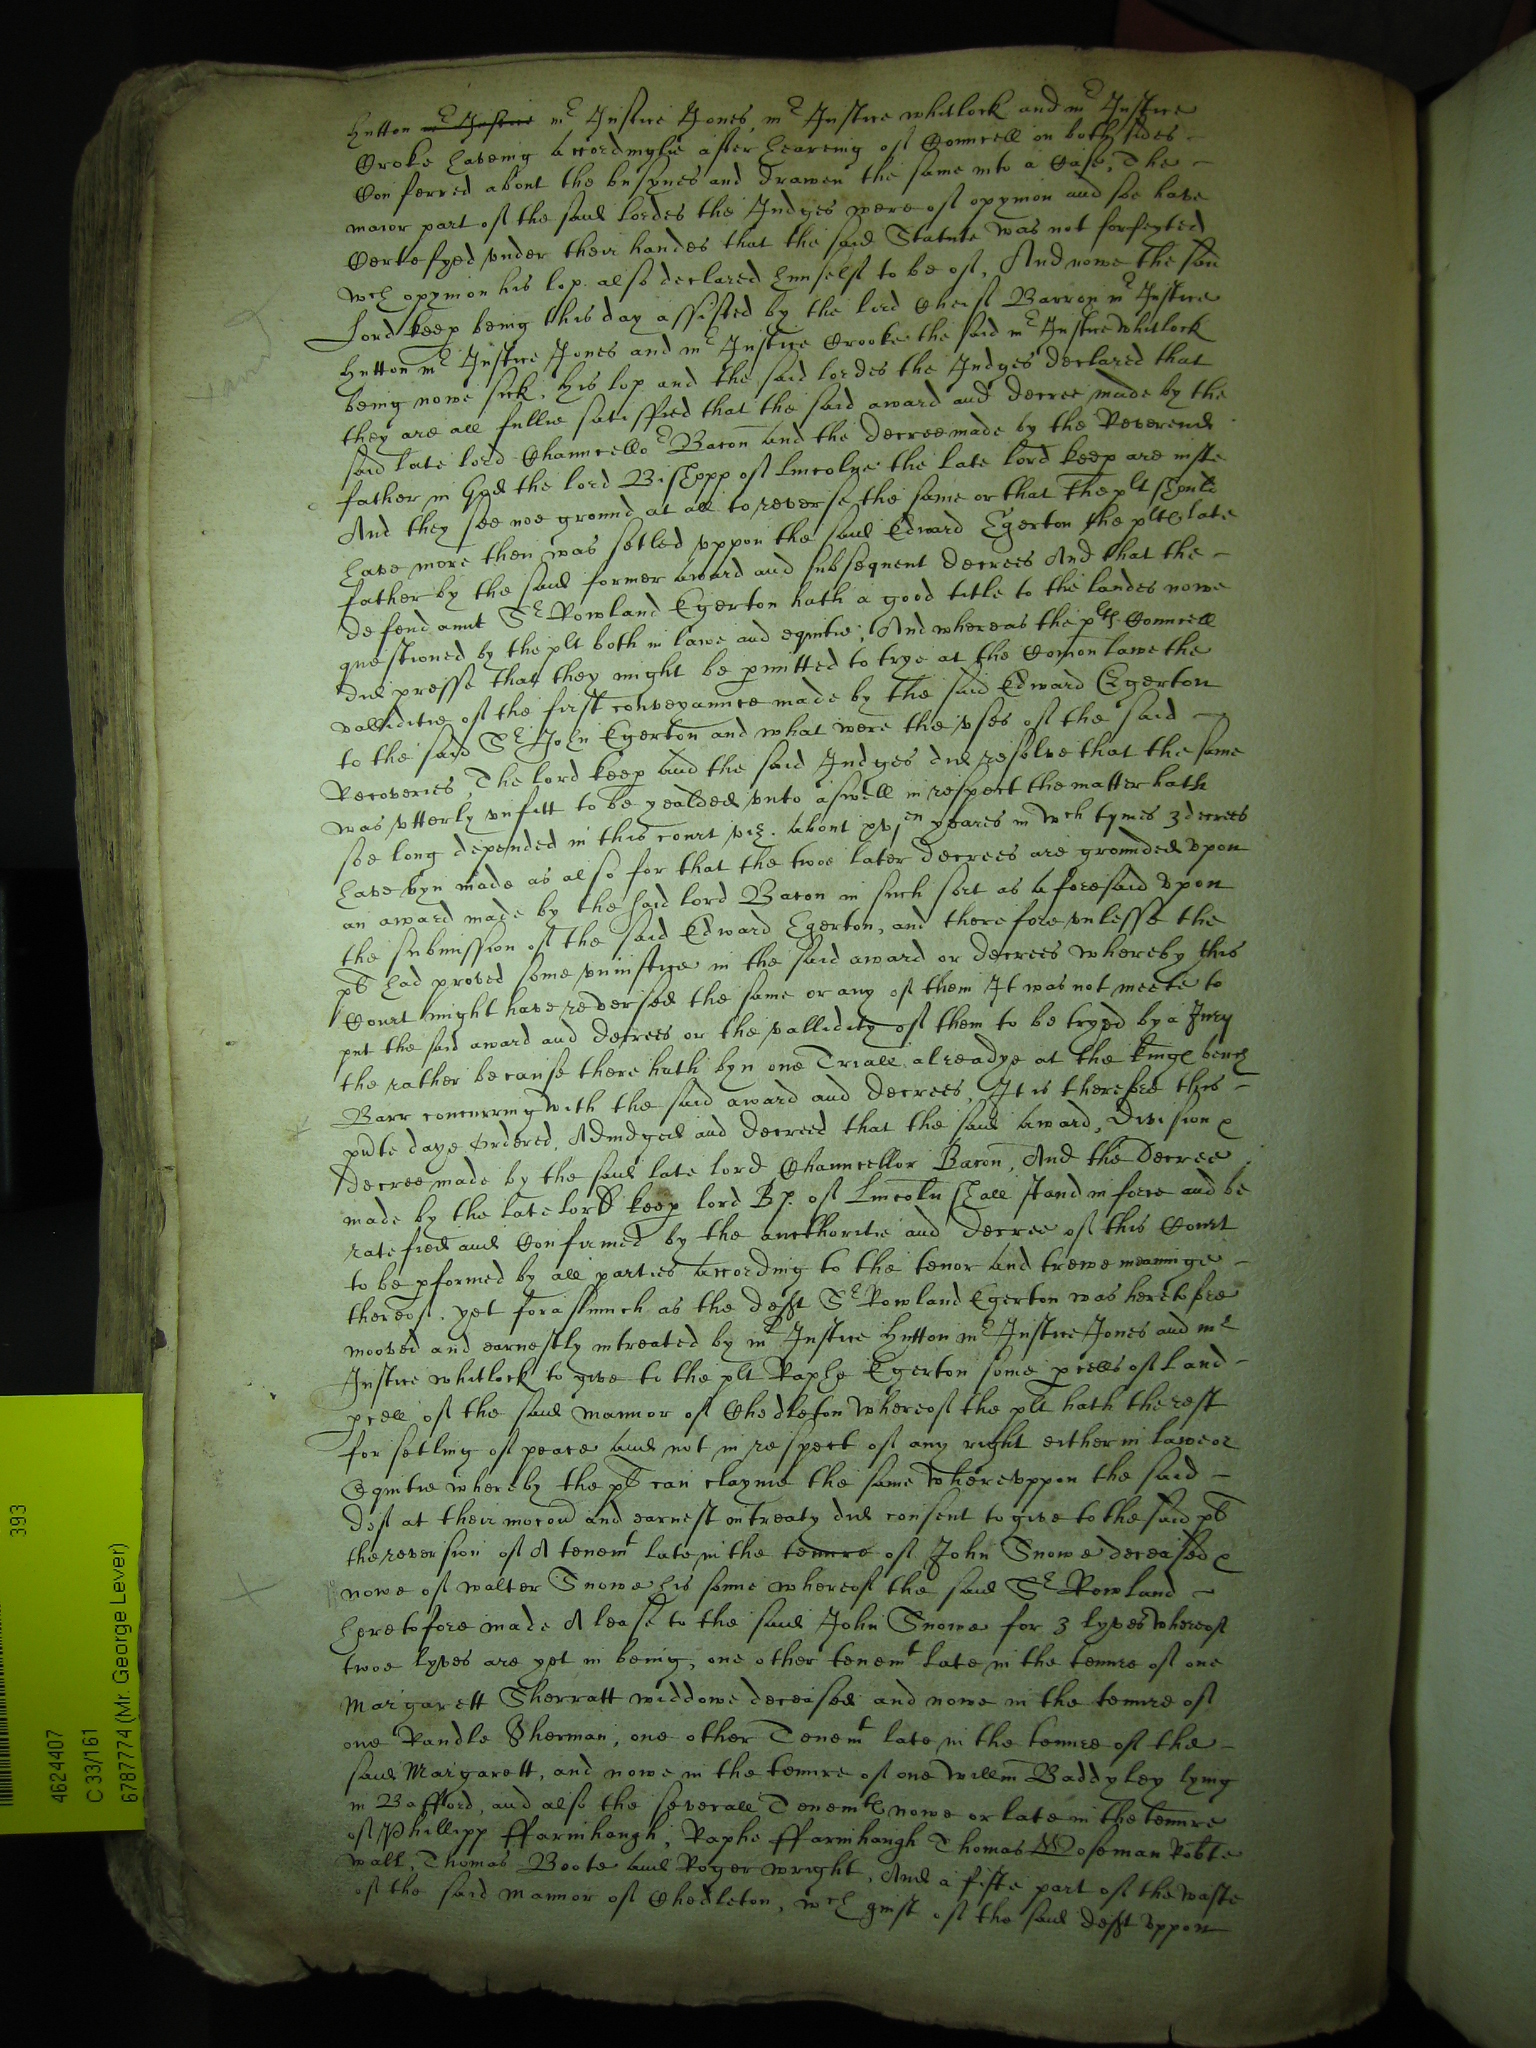 Hutton mr Justice mr Justice Jones, mr Justice whitlock and mr Justice
Croke haveing accordinglie after heareing of Councell on both sides
Conferred about the busynes and drawen the same into a Case, The
maior part of the said lordes the Judges were of opynion and soe have
Certefyed under their handes that the said Statute was not forfeyted
wch opynion his lop. also declared himself to be of, And nowe the said
Lord keep being this day assisted by the lord Cheif Barron mr Justice
Hutton mr Justice Jones and mr Justice Crooke the said mr Justice Whitlock
being nowe sick, his lop and the said lordes the Judges declared that
they are all fullie satisfied that the said award and decree made by the
said late lord Chauncellor Bacon and the decree made by the Reverend
father in God the lord Bishopp of Lincolne the late lord keep are iuste
And they see noe ground at all to reverse the same or that the plt should
have more then was setled uppon the said Edward Egerton the pltes late
father by the said former award and subsequent decrees And that the
defendannt Sr Rowland Egerton hath a good title to the landes nowe
questioned by the plt both in lawe and equitie, And whereas the pltes Councell
did presse that they might be pmitted to trye at the Comon lawe the
valliditie of the first conveyaunce made by the said Edward Egerton
to the said Sr John Egerton and what were the uses of the said
Recoveries, The lord keep and the said Judges did resolve that the same
was utterly unfitt to be yealded unto aswell in respect the matter hath
soe long depended in this court viz. about xvjen yeares in wch tymes 3 decrees
have byn made as also for that the twoe later decrees are grounded upon
an award made by the said lord Bacon in such sort as aforesaid upon
the submission of the said Edward Egerton, and therefore unlesse the
pt had proved some uniustice in the said award or decrees whereby this
Court might have reversed the same or any of them It was not meete to
put the said award and decrees or the vallidity of them to be tryed by a Jury
the rather because there hath byn one Triall alreadye at the kinges bench
Barr concurring with the said award and decrees, It is therefore this
pnte daye Ordered, Adiudged and decreed that the said award, division &
decree made by the said late lord Chauncellor Bacon, And the decree
made by the late lord keep lord Bp. of Lincoln shall stand in force and be
ratefied and Confirmed by the aucthoritie and decree of this Court
to be pformed by all parties according to the tenor and trewe meaninge
thereof, yet forasmuch as the defft Sr Rowland Egerton was heretofore
mooved and earnestly intreated by mr Justice Hutton mr Justice Jones and mr
Justice whitlock to give to the plt Raphe Egerton some pcells of Land
pcell of the said mannor of Chedleton whereof the plt hath the rest
for setling of peace and not in respect of any right either in lawe or
Equitie whereby the pt can clayme the same whereuppon the said
deft at their mocon and earnest intreaty did consent to give to the said pt
the reversion of A tenemt late in the tenure of John Snowe deceased &
nowe of walter Snowe his sonne whereof the said Sr Rowland
heretofore made A lease to the said John Snowe for 3 lyves whereof
twoe lyves are yet in being, one other tenemt late in the tenure of one
Margarett Sherratt widdowe deceased and nowe in the tenure of
one Randle Sherman, one other Tenemt late in the tenure of the
said Margarett, and nowe in the tenure of one Willm Baddyley lying
in Bafford, and also the severall Tenemtes nowe or late in the tenure
of Phillipp ffarnihaugh, Raphe ffarnihaugh Thomas Moseman Robte
wall, Thomas Boote and Roger wright, And a fifte part of the waste
of the said mannor of Chedleton, wch guift of the said defft uppon
393
4624407
C 33/161
6787774 (Mr. George Lever)